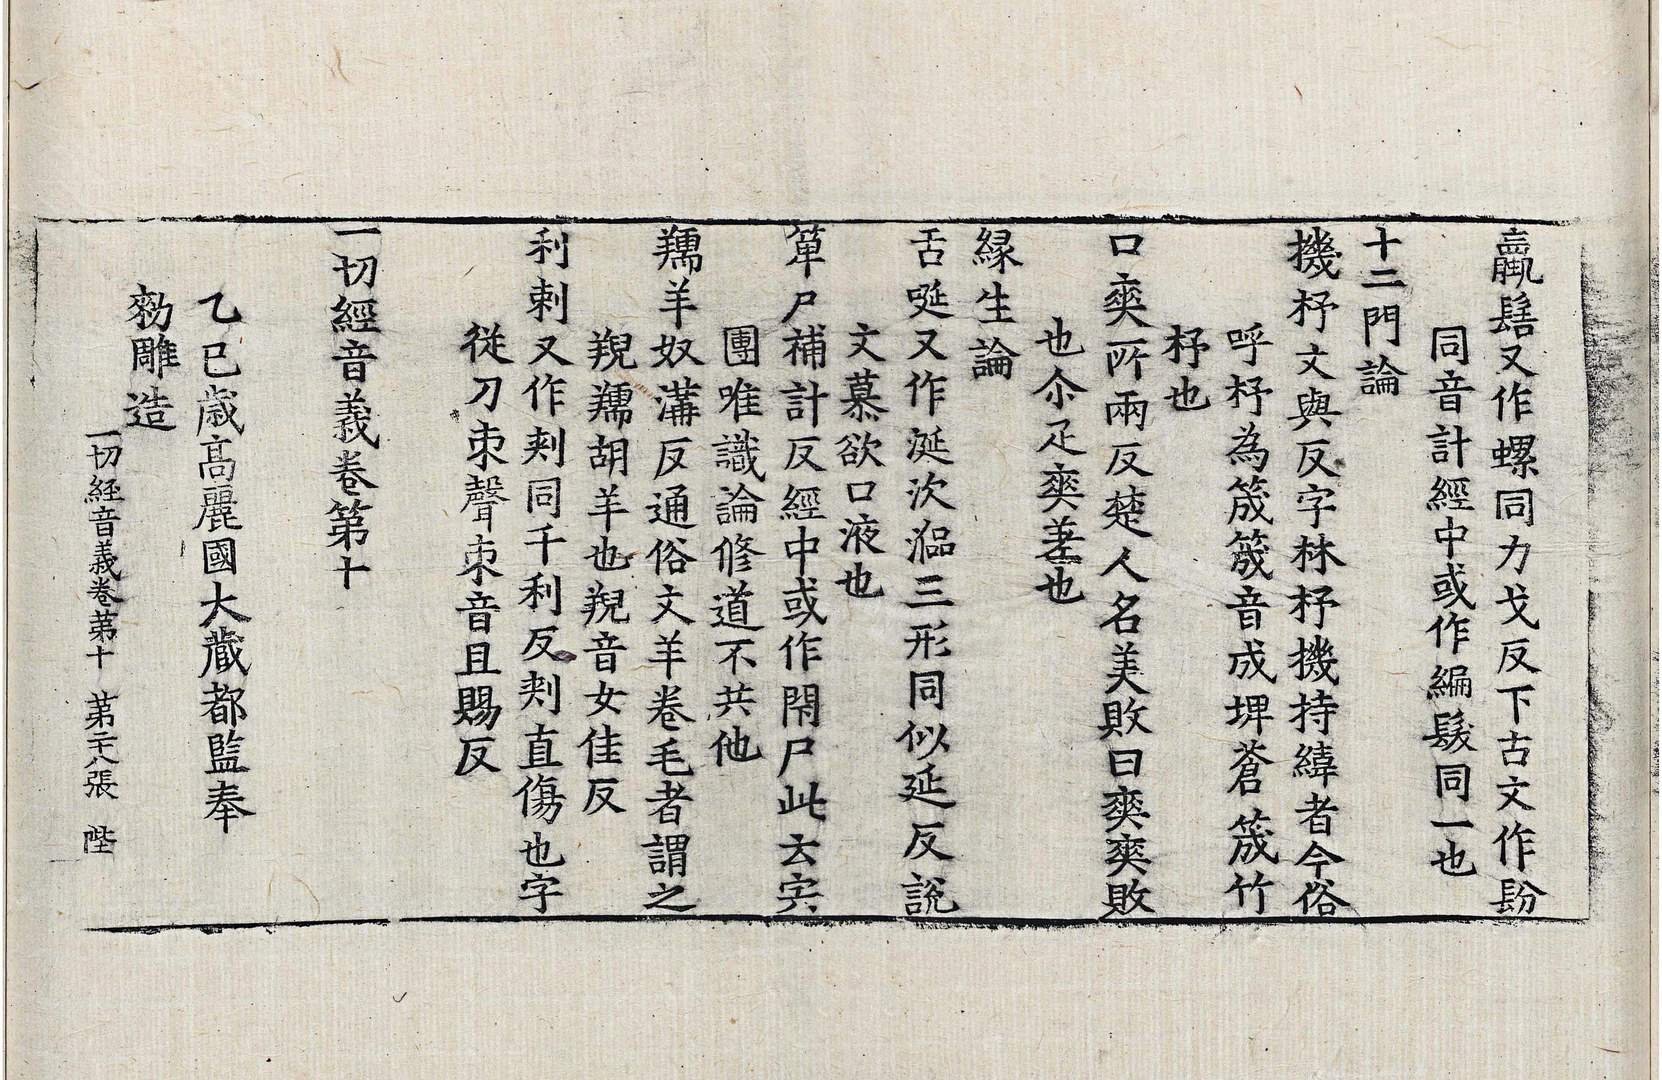 蠃髻又作螺同力戈反下古文作䯻
同音計經中或作編髮同一也
十二門論
機杼文與反字林杼機持緯者今俗
呼杼為筬筬音成埤蒼筬竹
杼也
口爽所兩反楚人名美敗曰爽爽敗
也尒疋爽差也
緣生論
舌唌又作涎次㳄三形同似延反說
文慕欲口液也
箄尸補計反經中或作閇尸此云宍
團唯識論修道不共他
羺羊奴溝反通俗文羊卷毛者謂之
䍲羺胡羊也䍲音女佳反
利刺又作刾同千利反刾直傷也字
從刀朿聲朿音且賜反
一切經音義卷第十
乙巳歲高麗國大藏都監奉
勑雕造
一切経音義卷第十 第二十八張 陛